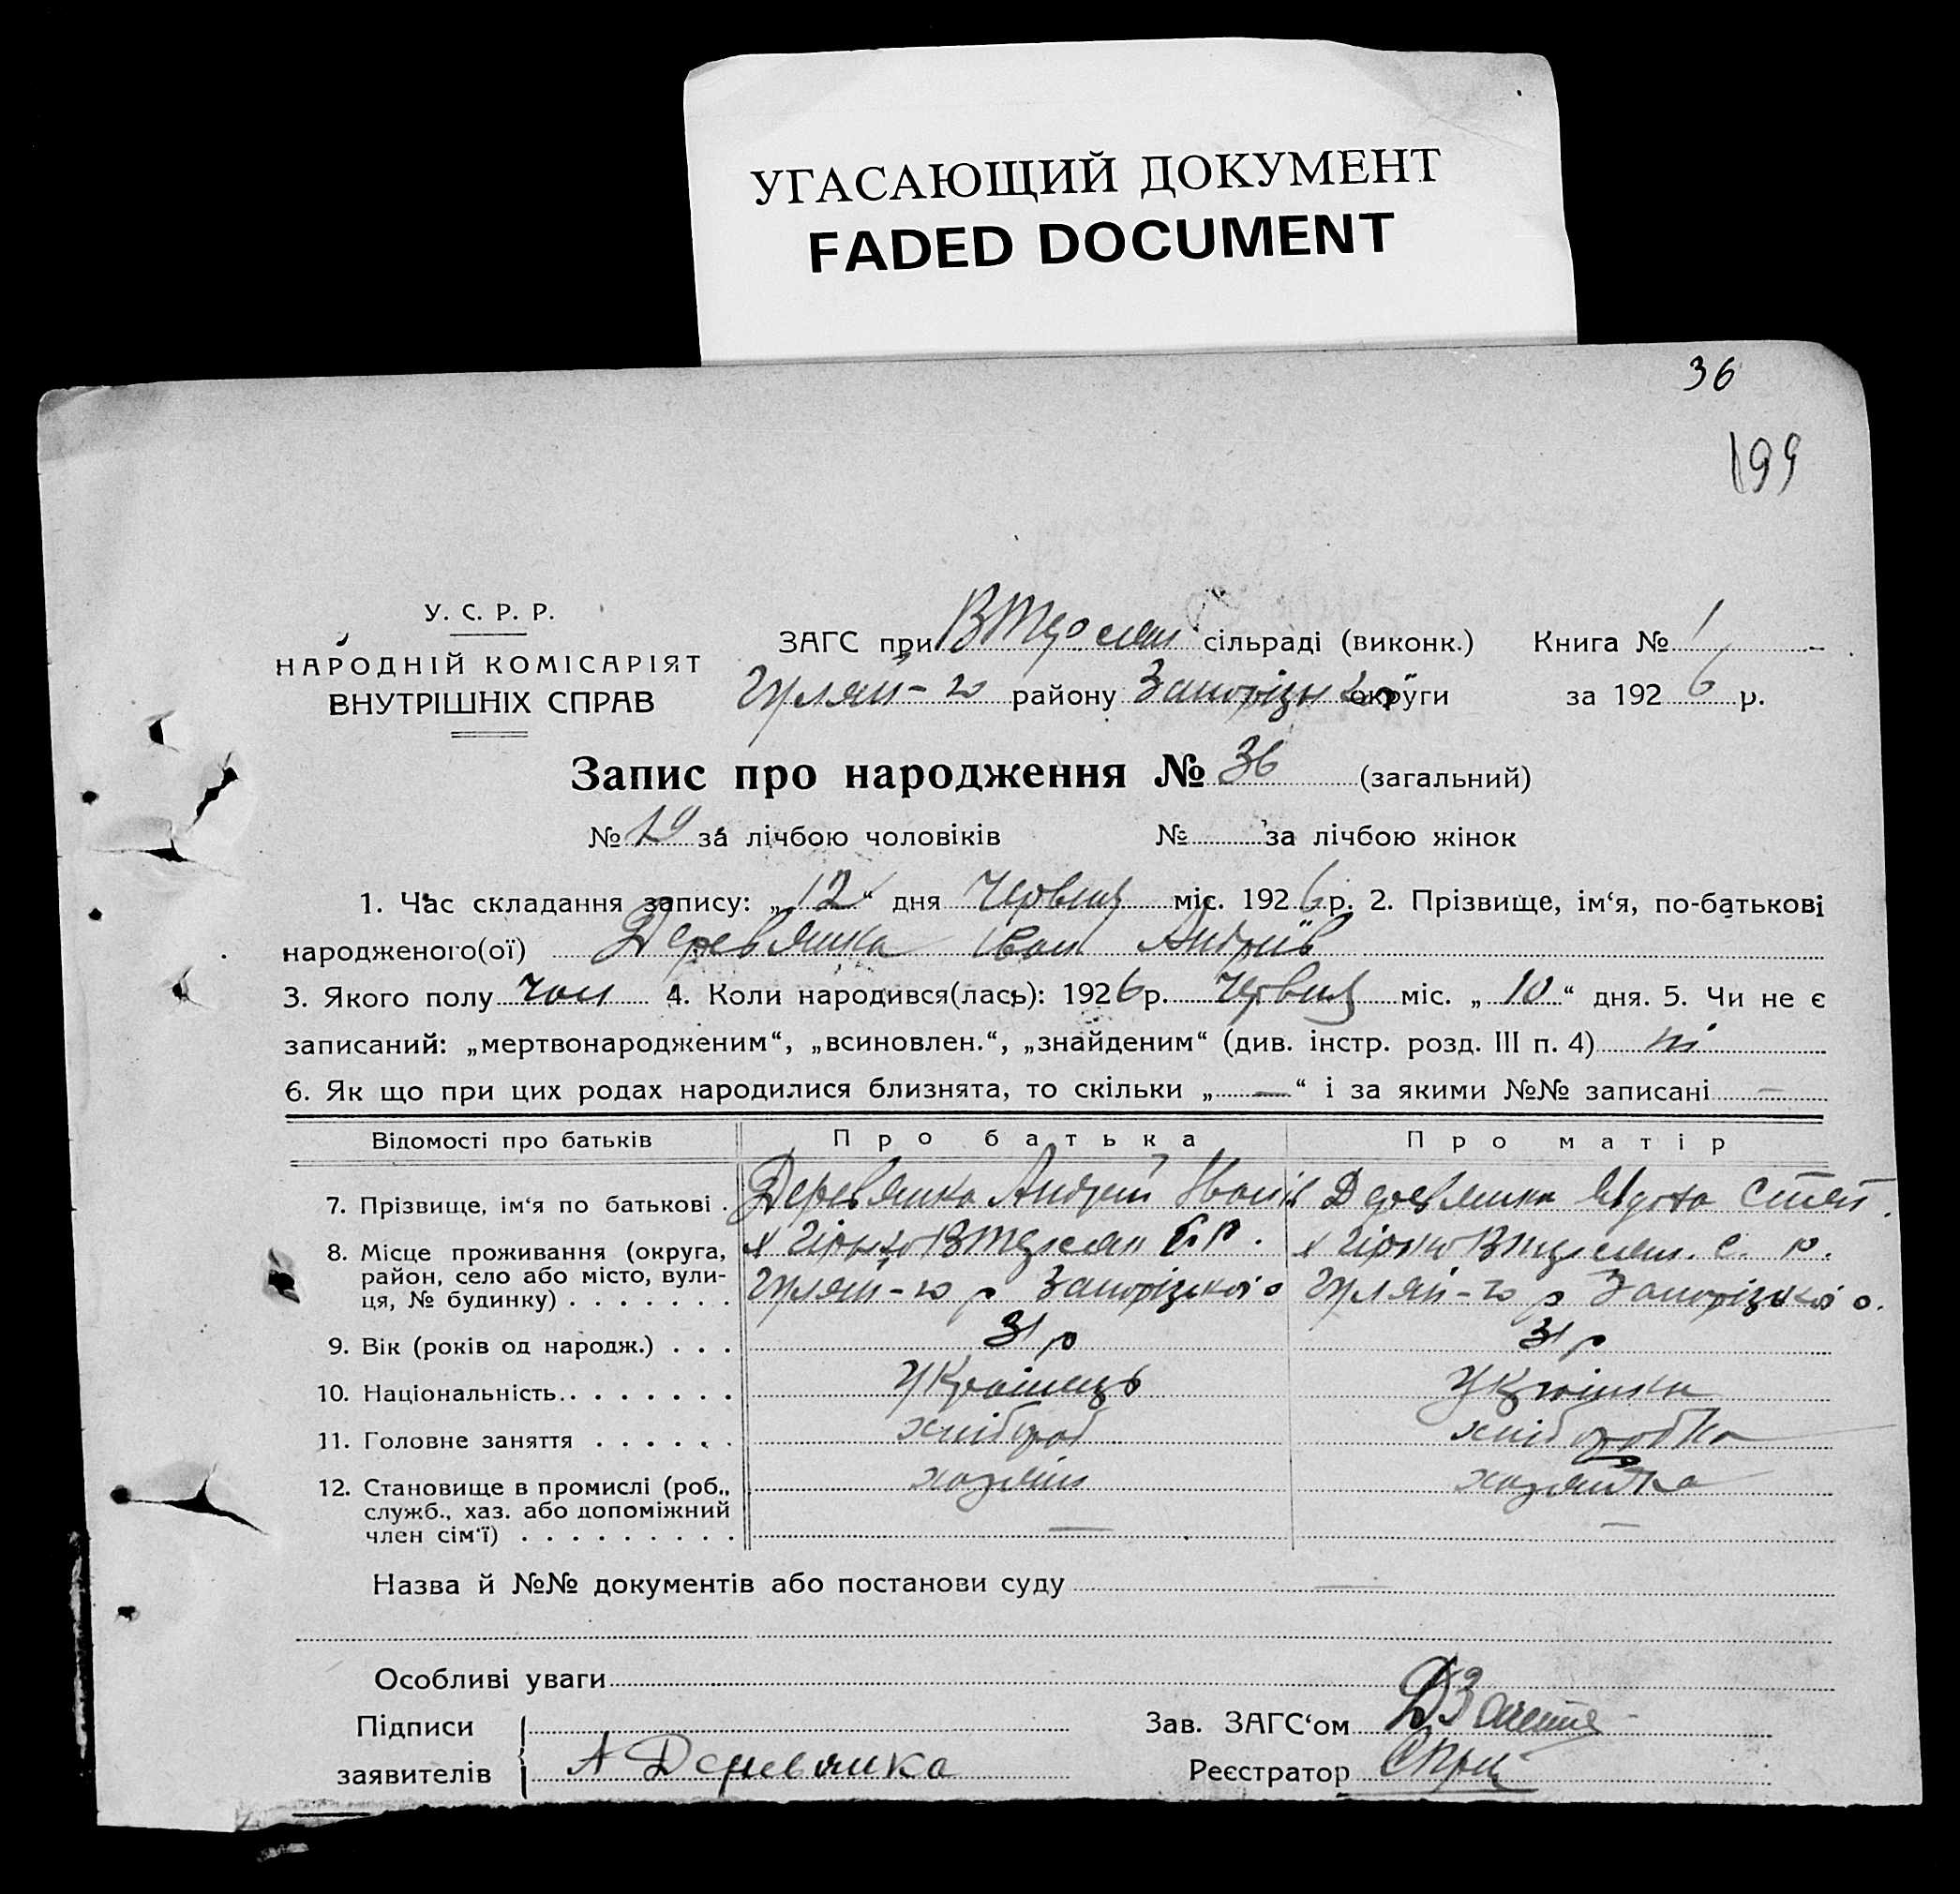 УГАСАЮЩИЙ ДОКУМЕНТ
FADED DOCUMENT
36
199
У. С. Р. Р.
НАРОДНІЙ КОМІСАРІЯТ
ВНУТРІШНІХ СПРАВ
ЗАГС при сільраді (виконк.) Книга № 1
Гуляй-го району Запоріzьк округи за 1926 р.
Запис про народження № 36 (загальний)
№ 19 за лічбою чоловіків № за лічбою жінок
1. Час складання запису: „12“ дня Червця міс. 1926 р. 2. Прізвище, ім‘я, по-батькові
народженого(ої) Деревянка Іван Андріїв
3. Якого полу чол 4. Коли народився(лась): 1926 р. Червця міс. „10“ дня. 5. Чи не є
записаний: „мертвонародженим“, „всиновлен.“, „знайденим“ (див. інстр. розд. III п. 4) ні
6. Як що при цих родах народилися близнята, то скільки „—“ і за якими №№ записані —
Відомості про батьків Про батька Про матір
7. Прізвище, ім‘я по батькові . Деревянко Андрій Іванів Деревянка Євдокія Степ.
8. Місце проживання (округа,
район, село або місто, вули-
ця, № будинку) . . . . . . . Гуляй-го р Запорізького Гуляй-го р Запорізького.
9. Вік (років од народж.) . . . 31 р 31 р
10. Національність. . . . . . . Українець Українка
11. Головне заняття . . . . . . хлібороб хліборобка
12. Становище в промислі (роб., хазяїн хазяйка
служб., хаз. або допоміжний
член сім‘ї) . . . . . . . . . — —
Назва й №№ документів або постанови суду —
Особливі уваги
Підписи
заявителів А Деревянко
Зав. ЗАГС‘ом
Реєстратор